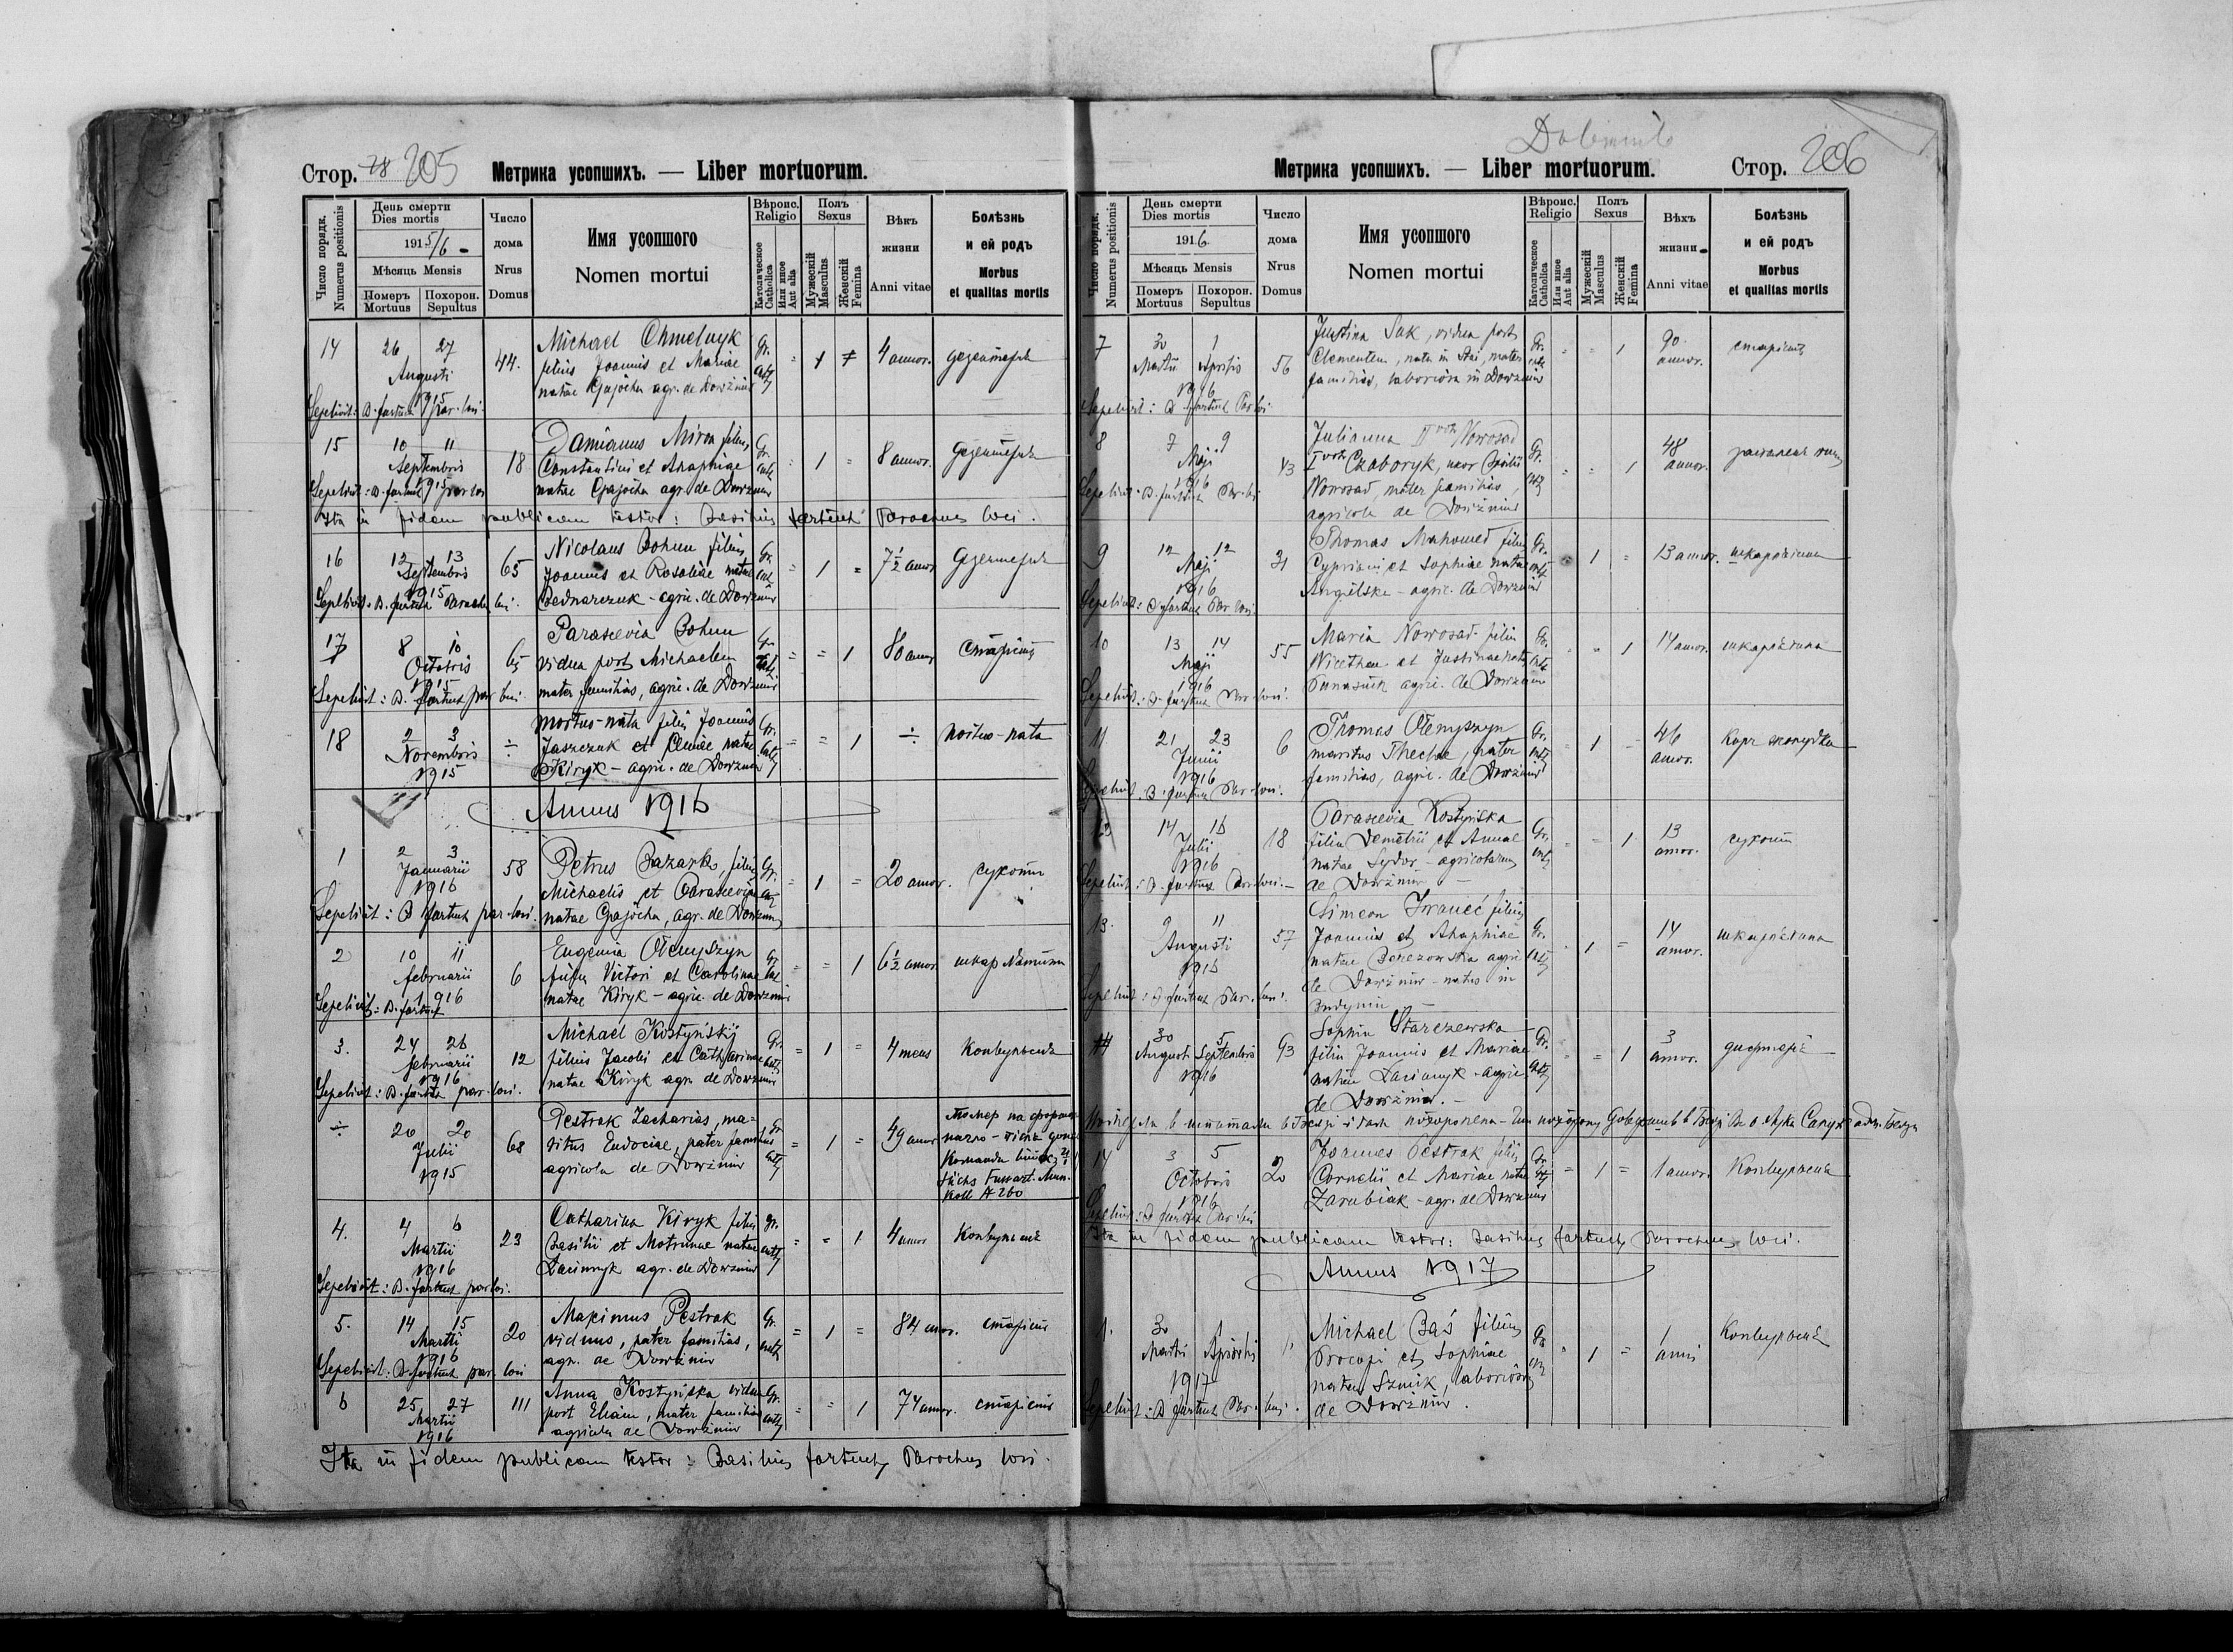 Стор. 78 205 Метрика усопшихъ. — Liber mortuorum.
Число порядк. Numerus positionis
День смерти Dies mortis
1915/6
Мѣсяць Mensis
Померъ Mortuus
Похорон. Sepultus
Число дома Nrus Domus
Имя усопшого
Nomen mortui
Вѣроис. Religio
Католическое Catholica
Или иное Aut alia
Полъ Sexus
Мужескій Masculus
Женскій Femina
Вѣкъ жизни Anni vitae
Болѣзнь и ей родъ
Morbus et qualitas mortis
14 26 27 44. Michael Chmelnyk Gr. = 1 4 annor. дезентерія
Augusti filius Joannis et Mariae cath
1915 natae Gajocha agr. de Dowżniw
Sepelivit: B. fartuch par. loci.
15 10 11 18 Damianus Miron filius Gr. = 1 = 8 annor. дезентерія
Septembris Constantini et Ahaphiae cath
1915 natae Gajocha agr. de Dowżniw
Sepelivit: B. fartuch par loci
Ita in fidem publicam testor: Basilius fartuch Parochus loci.
16 12 13 65 Nicolaus Bohun filius Gr. = 1 = 7 1/2 annor дезентерія
Septembris Joannis et Rosaliae natae cath
1915 Bednarczuk - agric. de Dowżniw
Sepelivit: B. fartuch Parochus loci.
17 8 10 65 Parascevia Bohun Gr = = 1 80 annor старість
Octobris vidua post Michaelem cath
1915 mater familias, agric. de Dowżniw
Sepelivit: B. fartuch par loci.
18 2 3 ÷ mortuo-nata filia Joannis Gr. = = 1 ÷ mortuo-nata
Novembris Jaszczuk et natae cath
1915 Kiryk - agric. de Dowżniw
Annus 1916
1 2 3 58 Petrus Bazarko, filius Gr. = 1 = 20 annor. сухоти
Januarii Michaelis et Parasceviae cath
1916 natae Gajocha, agr. de Dowżniw
Sepelivit: B fartuch par. loci.
2 10 11 6 Eugenia Ołenyszyn Gr = = 1 6 1/2 annor шкарлятина
februarii filia Victori et Carolinae cath
1916 natae Kiryk - agric. de Dowżniw
Sepelivit: B. fartuch
3. 24 26 12 Michael Kostyńskij Gr. = 1 = 4 mens Конвульсия
februarii filius Jacobi et Catharinae cath
1916 natae Kiryk agr. de Dowżniw
Sepelivit: B. fartuch par. loci.
÷ 20 20 68 Pestrak Zacharias, ma- Gr = 1 = 49 annor Помер на
Julii ritus Eudociae, pater familias cath
1915 agricola de Dowżniw
Sächs Fussart. Mun.
Koll № 260
4. 4 6 23 Catharina Kiryk filia Gr. = = 1 4 annor Конвульсия
Martii Basilii et Motrunae natae cath
1916 agr. de Dowżniw
Sepelivit: B. fartuch par loci.
5. 14 15 20 Maximus Pestrak Gr. = 1 = 84 annor. старість
Martii viduus, pater familias, cath
1916 agr. de Dowżniw
Sepelivit: B. fartuch par. loci
6 25 27 111 Anna Kostyńska vidua Gr. = = 1 74 annor. старість
Martii post Eliam, mater familias cath
1916 agricola de Dowżniw
Ita in fidem publicam testor: Basilius fartuch Parochus loci.
Метрика усопшихъ. — Liber mortuorum. Стор. 206
Число порядк. Numerus positionis
День смерти Dies mortis
1916.
Мѣсяць Mensis
Померъ Mortuus
Похорон. Sepultus
Число дома Nrus Domus
Имя усопшого
Nomen mortui
Вѣроис. Religio
Католическое Catholica
Или иное Aut alia
Полъ Sexus
Мужескій Masculus
Женскій Femina
Вѣхъ жизни Anni vitae
Болѣзнь и ей родъ
Morbus et qualitas mortis
7 30 1 56 Justina Sak, vidua post Gr. = = 1 90 annor. старість
Martii Aprilis Clementem, nata in mater cath
1916 familias, laboriosa in Dowżniw
Sepelivit: B. fartuch Par loci
8 7 9 43 Julianna II voto Nowosad Gr. = = 1 48 annor.
Maji I voto uxor Basilii cath
1916 Nowosad, mater familias,
Sepelivit: B. fartuch Par. loci agricola de Dowżniw
9 12 12 31 Thomas Mahomed filius Gr. = 1 = 13 annor. шкарлятина
Maji Cypriani et Sophiae natae cath
1916 agric. de Dowżniw
Sepelivit: B fartuch Par loci
10 13 14 55 Maria Nowosad filia Gr. = = 1 14 annor. шкарлятина
Maji et Justinae natae cath
1916 Panasiuk agric. de Dowżniw
Sepelivit: B. fartuch Par. loci.
11 21 23 6 Thomas Ołenyszyn Gr. = 1 = 46 annor. Корч жолудка
Junii maritus Theclae, pater cath
1916 familias, agric. de Dowżniw
Sepelivit: B. fartuch Par. loci.
12 14 16 18 Parascevia Kostyńska Gr. = = 1 13 annor. сухоти
Julii filia Demetrii et Annae cath
1916 natae Sydor - agricolarum
Sepelivit: B. fartuch Par loci. de Dowżniw
13. 9 11 57 Simeon Iwaneć filius Gr. = 1 = 14 annor. шкарлятина
Augusti Joannis et Ahaphiae cath
1916 natae Berezowska agric
de Dowżniw - natus in
Sepelivit: B. fartuch Par. loci. Budynin
14 30 5 93 Sophia Starczewska Gr. = = 1 3 annor. дифтерія
August Septembris filia Joannis et Mariae cath
1916 natae agric
de Dowżniw.
14 3 5 20 Joannes Pestrak filius Gr = 1 = 1 annor. Конвульсия
Octobris Cornelii et Mariae natae cath
1916 Zarubiak - agr. de Dowżniw
Sepelivit: B fartuch Par. loci
Ita in fidem publicam testor: Basilius fartuch Parochus loci.
Annus 1917
1. 30 1 Michael Baś filius Gr = 1 = 1 anni Конвульсия
Martii Aprilis Procopi et Sophiae cath
1917 natae Szmik, laboriosi
Sepelivit: B fartuch Par. loci. de Dowżniw.